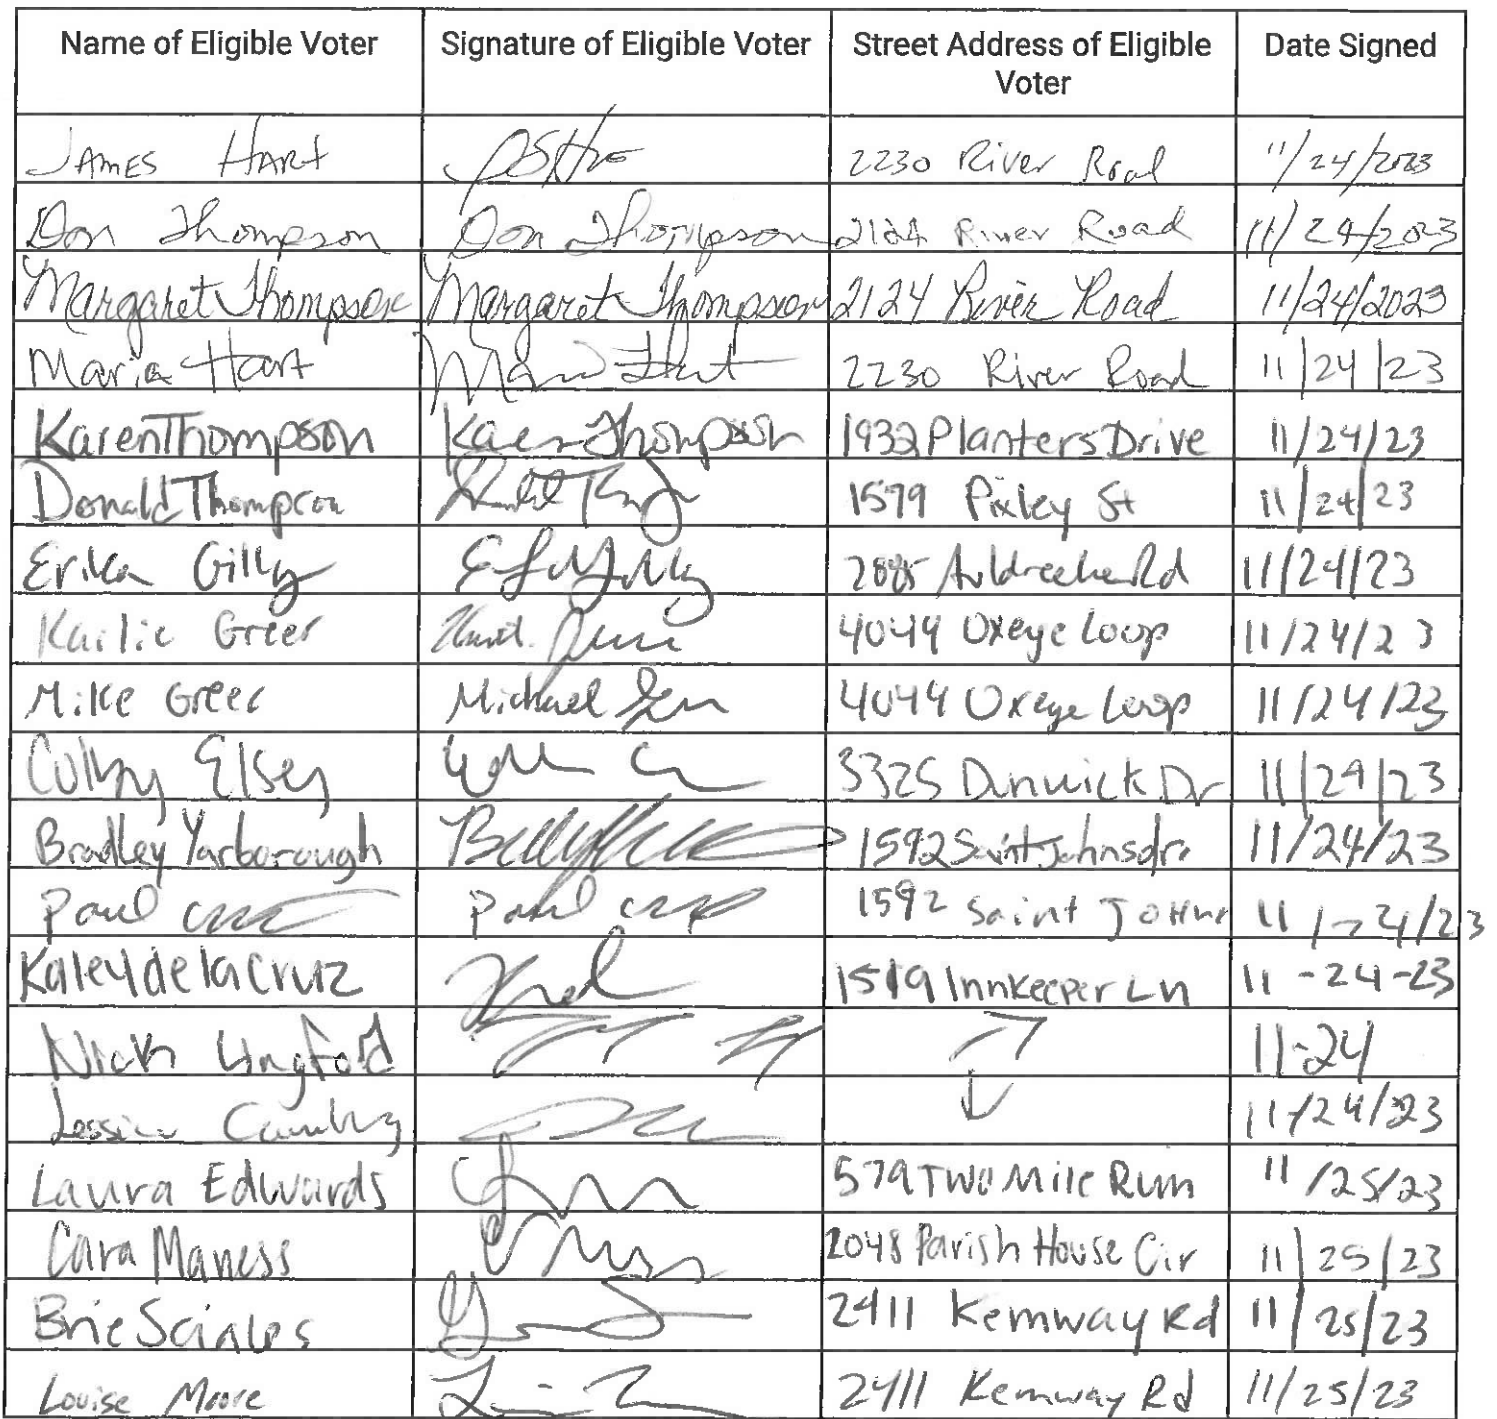 Name of Eligible Voter Signature of Eligible Voter Street Address of Eligible Voter Date Signed
JAMES HART 2230 River Road 11/24/2023
Don Thompson Don Thompson 2124 River Road 11/24/2023
Margaret Thompson Margaret Thompson 2124 River Road 11/24/2023
Maria Hart Maria Hart 2230 River Road 11/24/23
Karen Thompson Karen Thompson 1932 Planters Drive 11/24/23
Donald Thompson 1579 Pixley St 11/24/23
Erika Gilly Rd 11/24/23
Kailie Greer 4044 Oxeye Loop 11/24/23
Mike Greer Michael Greer 4044 Oxeye Loop 11/24/23
Colby Elsey 3325 Dunwick Dr 11/24/23
Bradley Yarborough 1592 Saint Johns dr 11/24/23
Paul Paul 1592 Saint 11/24/23
Kaley de la Cruz 1519 Innkeeper Ln 11-24-23
Nick 11-24
11/24/23
Laura Edwards 579 TWO Mile Run 11/25/23
Cara Maness 2048 Parish House Cir 11/25/23
Brie 2411 Kemway Rd 11/25/23
Louise Moore 2411 Kemway Rd 11/25/23